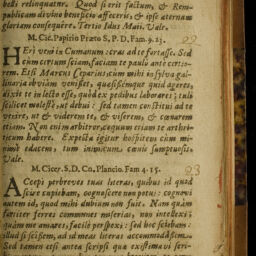 besti relinquatur. Quod si erit factum, & Rem-
publicam divino beneficio affeceris, & ipse æternam
gloriam consequere. Tertio Idus Maii. Vale.
M. Cic. Papirio Pæto S. P. D. Fam. 9. 23.
22
HEri veni in Cumanum: cras ad te fortasse. Sed
cum certum sciam, faciam te paulo ante certio-
rem. Etsi Marcus Ceparius, cum mihi in sylva gal-
linaria obviam venisset, quæsissemque quid ageres,
dixit te in lecto esse, quod ex pedibus laborares; tuli
scilicet molestè, ut debui: sed tamen constitui ad te
venire, ut & viderem te, & viserem, & cœnarem
etiam. Non enim arbitror, coquum etiam te arthri-
ticum habere. Expecta igitur hospitem cum mi-
nimè edacem, tum inimicum cœnis sumptuosis.
Vale.
M. Cicer. S. D. Cn. Plancio. Fam 4. 15.
23
ACcepi perbreves tuas literas, quibus id quod
scire cupiebam, cognoscere non potui; cognovi
autem id, quod mihi dubium non fuit. Nam quàm
fortiter ferres communes miserias, non intellexi;
quàm me amares, facilè perspexi: sed hoc sciebam:
illud si scissem, ad id meas literas accommodassem.
Sed tamen etsi antea scripsi quæ existimavi scri-